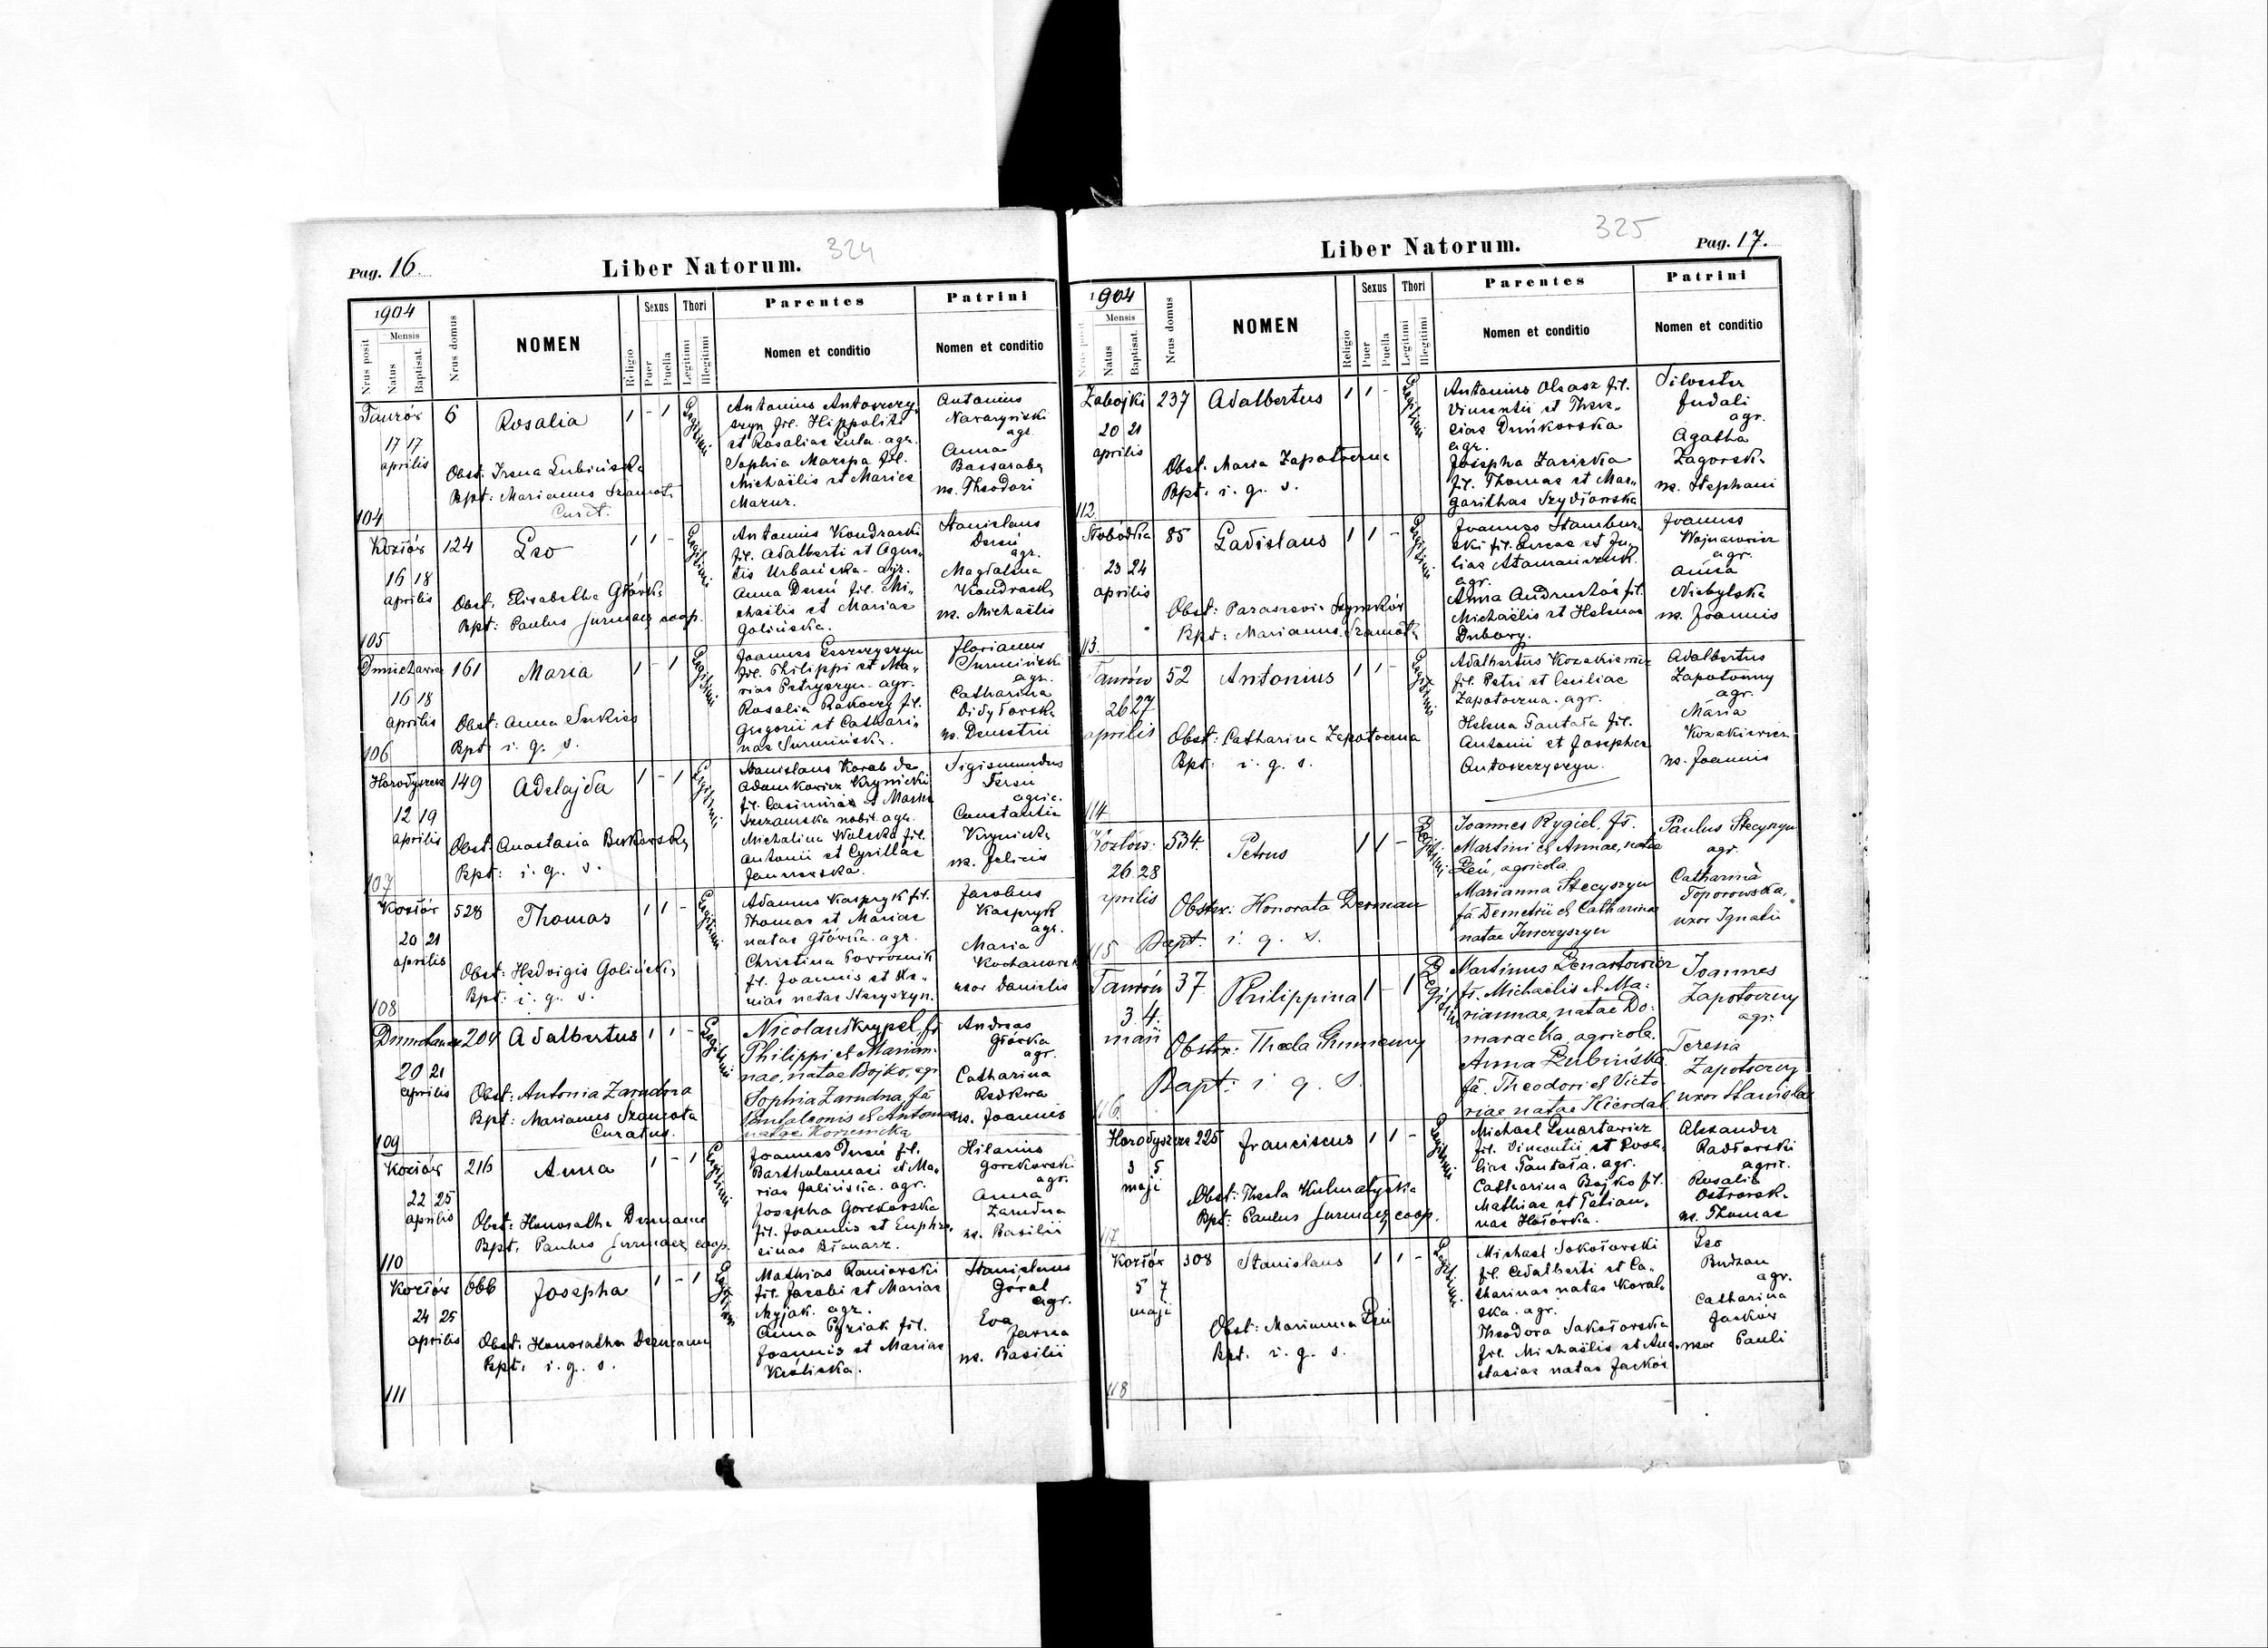 324
Pag. 16.
Liber Natorum.
1904
Mensis
Nrus posit
Natus
Baptisat.
Nrus domus
NOMEN
Religio
Sexus
Puer
Puella
Thori
Legitimi
Illegitimi
Parentes
Nomen et conditio
Patrini
Nomen et conditio
Taurów 6 Rosalia 1 - 1 Legitimi
17 17
aprilis
Obst. Irena Lubińska
Bpt: Marianus Szamota
Curat.
104
Antonius Antoszczy„
szyn fil. Hippoliti
et Rosaliae Lula. agr.
Sophia Marspa fil.
Michaëlis et Mariae
Mazur.
Antonius
Nawaryński
agr.
Anna
Bassaraba
ux. Theodori
Kozłów 124 Leo 1 1 - Legitimi
16 18
aprilis
Obst. Elisabetha Główka
Bpt: Paulus Jurmacz, coop.
105
Antonius Kondracki
fil. Adalberti et Agne„
tis Urbańska. agr.
Anna Dereń fil. Mi„
chaëlis et Mariae
Golińska.
Stanislaus
Dereń
agr.
Magdalena
Kondracka
ux. Michaëlis
161 Maria 1 - 1 Legitimi
16 18
aprilis
Obst: Anna
Bpt: i. q. s.
106
Joannes Leszczyszyn
fil. Philippi et Ma„
riae Petryszyn. agr.
Rosalia Rakoczy fil.
Gregorii et Cathari„
nae Surmińska.
Florianus
Surmiński
agr.
Catharina
Didyłowska
ux. Demetrii
Horodyszcze 149 Adelajda 1 - 1 Legitimi
12 19
aprilis
Obst. Anastasia Bukowska
Bpt: i. q. s.
107
Stanislaus Korab de
Adamkowicz Krynicki
fil. Casimirae et Mariae
nobil. agr.
Michalina Walska fil.
Antonii et Cyrillae
Sigismundus
Tereń
agric.
Constantia
Krynicka
ux. Felicis
Kozłów 528 Thomas 1 1 - Legitimi
20 21
aprilis
Obst: Hedvigis Golińska
Bpt: i. q. s.
108
Adamus Kaspryk fil.
Thomae et Mariae
natae Główka. agr.
Christina Powroźnik
fil. Joannis et Ma„
riae natae Stecyszyn.
Jacobus
Kaspryk
agr.
Maria
Kochanowska
uxor Danielis
204 Adalbertus 1 1 - Legitimi
20 21
aprilis
Obst: Antonia Zarudna
Bpt: Marianus Szamota
Curatus.
109
Nicolaus Krypel, fs
Philippi et Marian-
nae, natae Bojko, agr
Sophia Zarudna, fa
Pantaleonis et Antoniae
natae Korzenicka
Andreas
Główka
agr.
Catharina
Redkwa
ux. Joannis
Kozłów 216 Anna 1 - 1 Legitimi
22 25
aprilis
Obst: Honoratha Derman
Bpt. Paulus Jurmacz, coop.
110
Joannes Dereń fil.
Bartholomaei et Ma„
riae Golińska. agr.
Josepha Gorekowska
fil. Joannis et Euphro„
sinae
Hilarius
Gorekowski
agr.
Anna
Zarudna
ux. Basilii
Kozłów 666 Josepha 1 - 1 Legitimi
24 25
aprilis
Obst. Honoratha Dermann
Bpt. i. q. s.
111
Mathias Raniowski
fil. Jacobi et Mariae
Myjak. agr.
Anna Pyziak fil.
Joannis et Mariae
Królicka.
Stanislaus
Góral
agr.
Eva
Jarna
ux. Basilii
325
Liber Natorum.
Pag. 17.
1904
Mensis
Nrus posit
Natus
Baptisat.
Nrus domus
NOMEN
Religio
Sexus
Puer
Puella
Thori
Legitimi
Illegitimi
Parentes
Nomen et conditio
Patrini
Nomen et conditio
Zabojki 237 Adalbertus 1 1 - Legitimi
20 21
aprilis
Obst. Maria Zapotoczna
Bpt. i. q. s.
112
Antonius Oleasz fil.
Vincentii et There„
siae Duńkowska
agr.
Josepha Zaricka
fil. Thomae et Mar„
garithae Szydłowska
Silvester
Judali
agr.
Agatha
Zagorska
ux. Stephani
Słobódka 85 Ladislaus 1 1 - Legitimi
23 24
aprilis
Obst: Parascevia Szymków
Bpt: Marianus Szamota
113.
Joannes Stambur„
ski fil. Lucae et Ju„
liae Atamańczuk.
agr.
Anna Andruchów fil.
Michaëlis et Helenae
Dubowy.
Joannes
Wojnarowicz
agr.
Anna
Niebylska
ux. Joannis
Taurów 52 Antonius 1 1 - Legitimi
26 27
aprilis
Obst: Catharina Zapotoczna
Bpt: i. q. s.
114
Adalbertus Kozakiewicz
fil. Petri et Ceciliae
Zapotoczna. agr.
Helena Tantała fil.
Antonii et Josephae
Antoszczyszyn.
Adalbertus
Zapotoczny
agr.
Maria
Kozakiewicz
ux. Joannis
Kozłów 534. Petrus 1 1 - Legitimi
26 28
aprilis
Obstx: Honorata Derman
Bapt. i. q. s.
115
Joannes Rygiel, fs.
Martini et Annae, natae
Leń, agricola.
Marianna Stecyszyn
fa Demetrii et Catharinae
natae
Paulus Stecyszyn
agr.
Catharina
Toporowska,
uxor Ignatii
Taurów 37. Philippina 1 - 1 Legitimi
3 4.
maii
Obstx: Thecla
Bapt: i q. s.
116.
Martinus Lenartowicz
fs. Michaelis et Ma-
riannae, natae Do-
maracka, agricola.
Anna Lubińska
fa. Theodori et Victo
riae natae Kierdal.
Joannes
Zapotoczny
agr.
Teresia
Zapotoczny
uxor Stanislai
Horodyszcze 225 Franciscus 1 1 - Legitimi
3 5
maji
Obst: Thecla Kulmatyska
Bpt: Paulus Jurmacz, coop.
117.
Michael Lenartowicz
fil. Vincentii et Rosa„
liae Tantała. agr.
Catharina Bojko fil.
Mathiae et Tatian„
nae Hołówka.
Alexander
Radłowski
agric.
Rosalia
Ostrowska
ux. Thomae
Kozłów 308 Stanislaus 1 1 - Legitimi
5 7
maji
Obst: Marianna Leń
Bpt. i. q. s.
118
Michael Sokołowski
fil. Adalberti et Ca„
tharinae natae Kowal„
ska. agr.
Theodora Sokołowska
fil. Michaëlis et Ana„
stasiae natae Jacków
Leo
Budzan
agr.
Catharina
Jacków
uxor Pauli